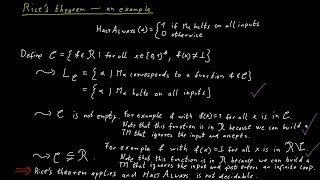 Rice's theorem — an example
HALTALWAYS (α) = { 1 if Mα halts on all inputs
0 otherwise
Define C = { f ∈ R | for all x ∈ {0,1}*, f(x) ≠ 1 }
⇝ L_C = { α | Mα corresponds to a function f ∈ C }
= { α | Mα halts on all inputs }
⇝ C is not empty. For example f with f(x)=1 for all x is in C.
Note that this function is in R because we can build a
TM that ignores the input and accepts.
⇝ C ⊊ R. For example f with f(x)=1 for all x is in R\C.
Note that this function is in R because we can build a
TM that ignores the input and just enters an infinite loop.
⇒ Rice's theorem applies and HALTALWAYS is not decidable.